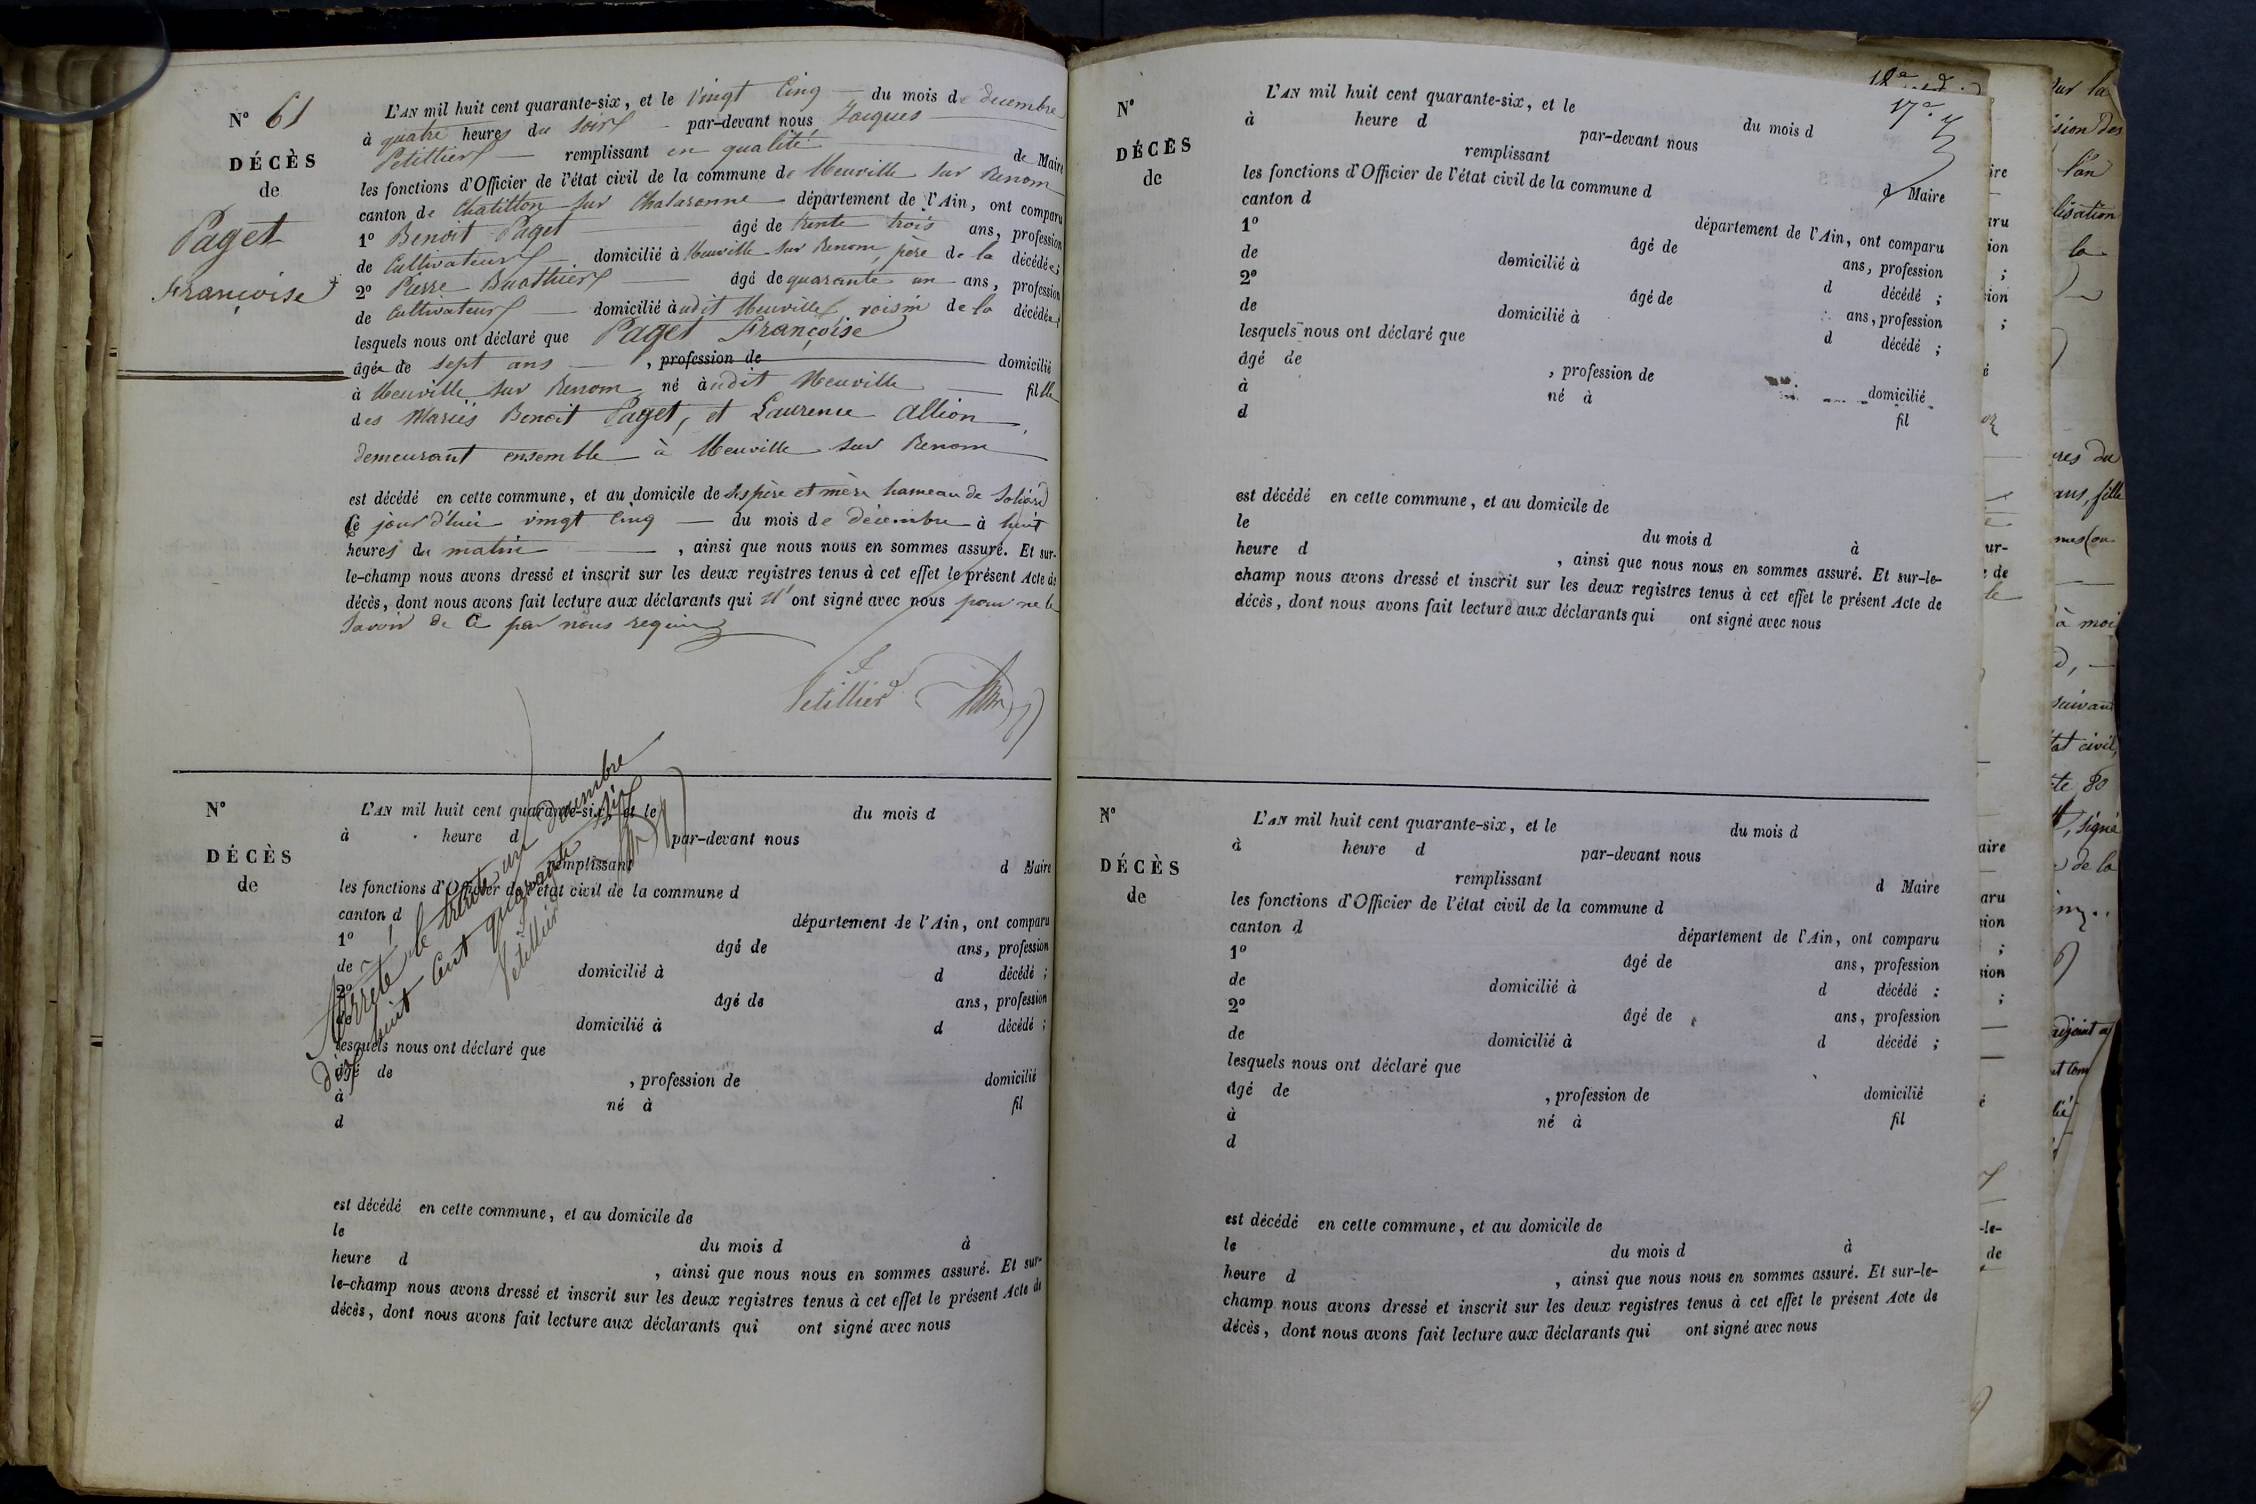 N° 61
DÉCÈS
de
Paget
Françoise
L'AN mil huit cent quarante-six, et le vingt Cinq du mois de decembre
à quatre heures du soir par-devant nous Jacques
Petillier remplissant en qualité de Maire
les fonctions d'Officier de l'état civil de la commune de Neuville sur Renom
canton de Chatillon sur Chalaronne département de l'Ain, ont comparu
1° Benoit Paget âgé de trente trois ans, profession
de Cultivateur domicilié à Neuville sur Renom, père de la décédée;
2° Pierre Buathier âgé de quarante un ans, profession
de Cultivateur domicilié audit Neuville, voisin de la décédée;
lesquels nous ont déclaré que Paget Françoise
âgée de sept ans , profession de domicilié
à Neuville sur Renom né audit Neuville fille
des Mariés Benoit Paget, et Laurence Allion,
demeurant ensemble à Neuville sur Renom
est décédé en cette commune, et au domicile de ses père et mère hameau de
ce jourd'hui vingt Cinq du mois de décembre à huit
heures du matin , ainsi que nous nous en sommes assuré. Et sur-
le-champ nous avons dressé et inscrit sur les deux registres tenus à cet effet le présent Acte de
décès, dont nous avons fait lecture aux déclarants qui n'ont signé avec nous pour ne le
savoir de ce par nous requis
Petillier
N°
DÉCÈS
de
L'AN mil huit cent quarante-six, et le du mois d
à heure d par-devant nous
remplissant d Maire
les fonctions d'Officier de l'état civil de la commune d
canton d
département de l'Ain, ont comparu
1° âgé de ans, profession
de domicilié à d décédé ;
2° âgé de ans, profession
de domicilié à d décédé ;
lesquels nous ont déclaré que
âgé de , profession de domicilié
à né à fil
d
Arrêté le trente un décembre
dix huit cent quarante six
Petillier
est décédé en cette commune, et au domicile de
le du mois d à
heure d , ainsi que nous nous en sommes assuré. Et sur-
le-champ nous avons dressé et inscrit sur les deux registres tenus à cet effet le présent Acte de
décès, dont nous avons fait lecture aux déclarants qui ont signé avec nous
17e
N°
DÉCÈS
de
L'AN mil huit cent quarante-six, et le du mois d
à heure d par-devant nous
remplissant d Maire
les fonctions d'Officier de l'état civil de la commune d
canton d département de l'Ain, ont comparu
1° âgé de ans, profession
de domicilié à d décédé ;
2° âgé de ans, profession
de domicilié à d décédé ;
lesquels nous ont déclaré que
âgé de , profession de domicilié
à né à fil
d
est décédé en cette commune, et au domicile de
le du mois d à
heure d , ainsi que nous nous en sommes assuré. Et sur-le-
champ nous avons dressé et inscrit sur les deux registres tenus à cet effet le présent Acte de
décès, dont nous avons fait lecture aux déclarants qui ont signé avec nous
N°
DÉCÈS
de
L'AN mil huit cent quarante-six, et le du mois d
à heure d par-devant nous
remplissant d Maire
les fonctions d'Officier de l'état civil de la commune d
canton d département de l'Ain, ont comparu
1° âgé de ans, profession
de domicilié à d décédé ;
2° âgé de ans, profession
de domicilié à d décédé ;
lesquels nous ont déclaré que
âgé de , profession de domicilié
à né à fil
d
est décédé en cette commune, et au domicile de
le du mois d à
heure d , ainsi que nous nous en sommes assuré. Et sur-le-
champ nous avons dressé et inscrit sur les deux registres tenus à cet effet le présent Acte de
décès, dont nous avons fait lecture aux déclarants qui ont signé avec nous